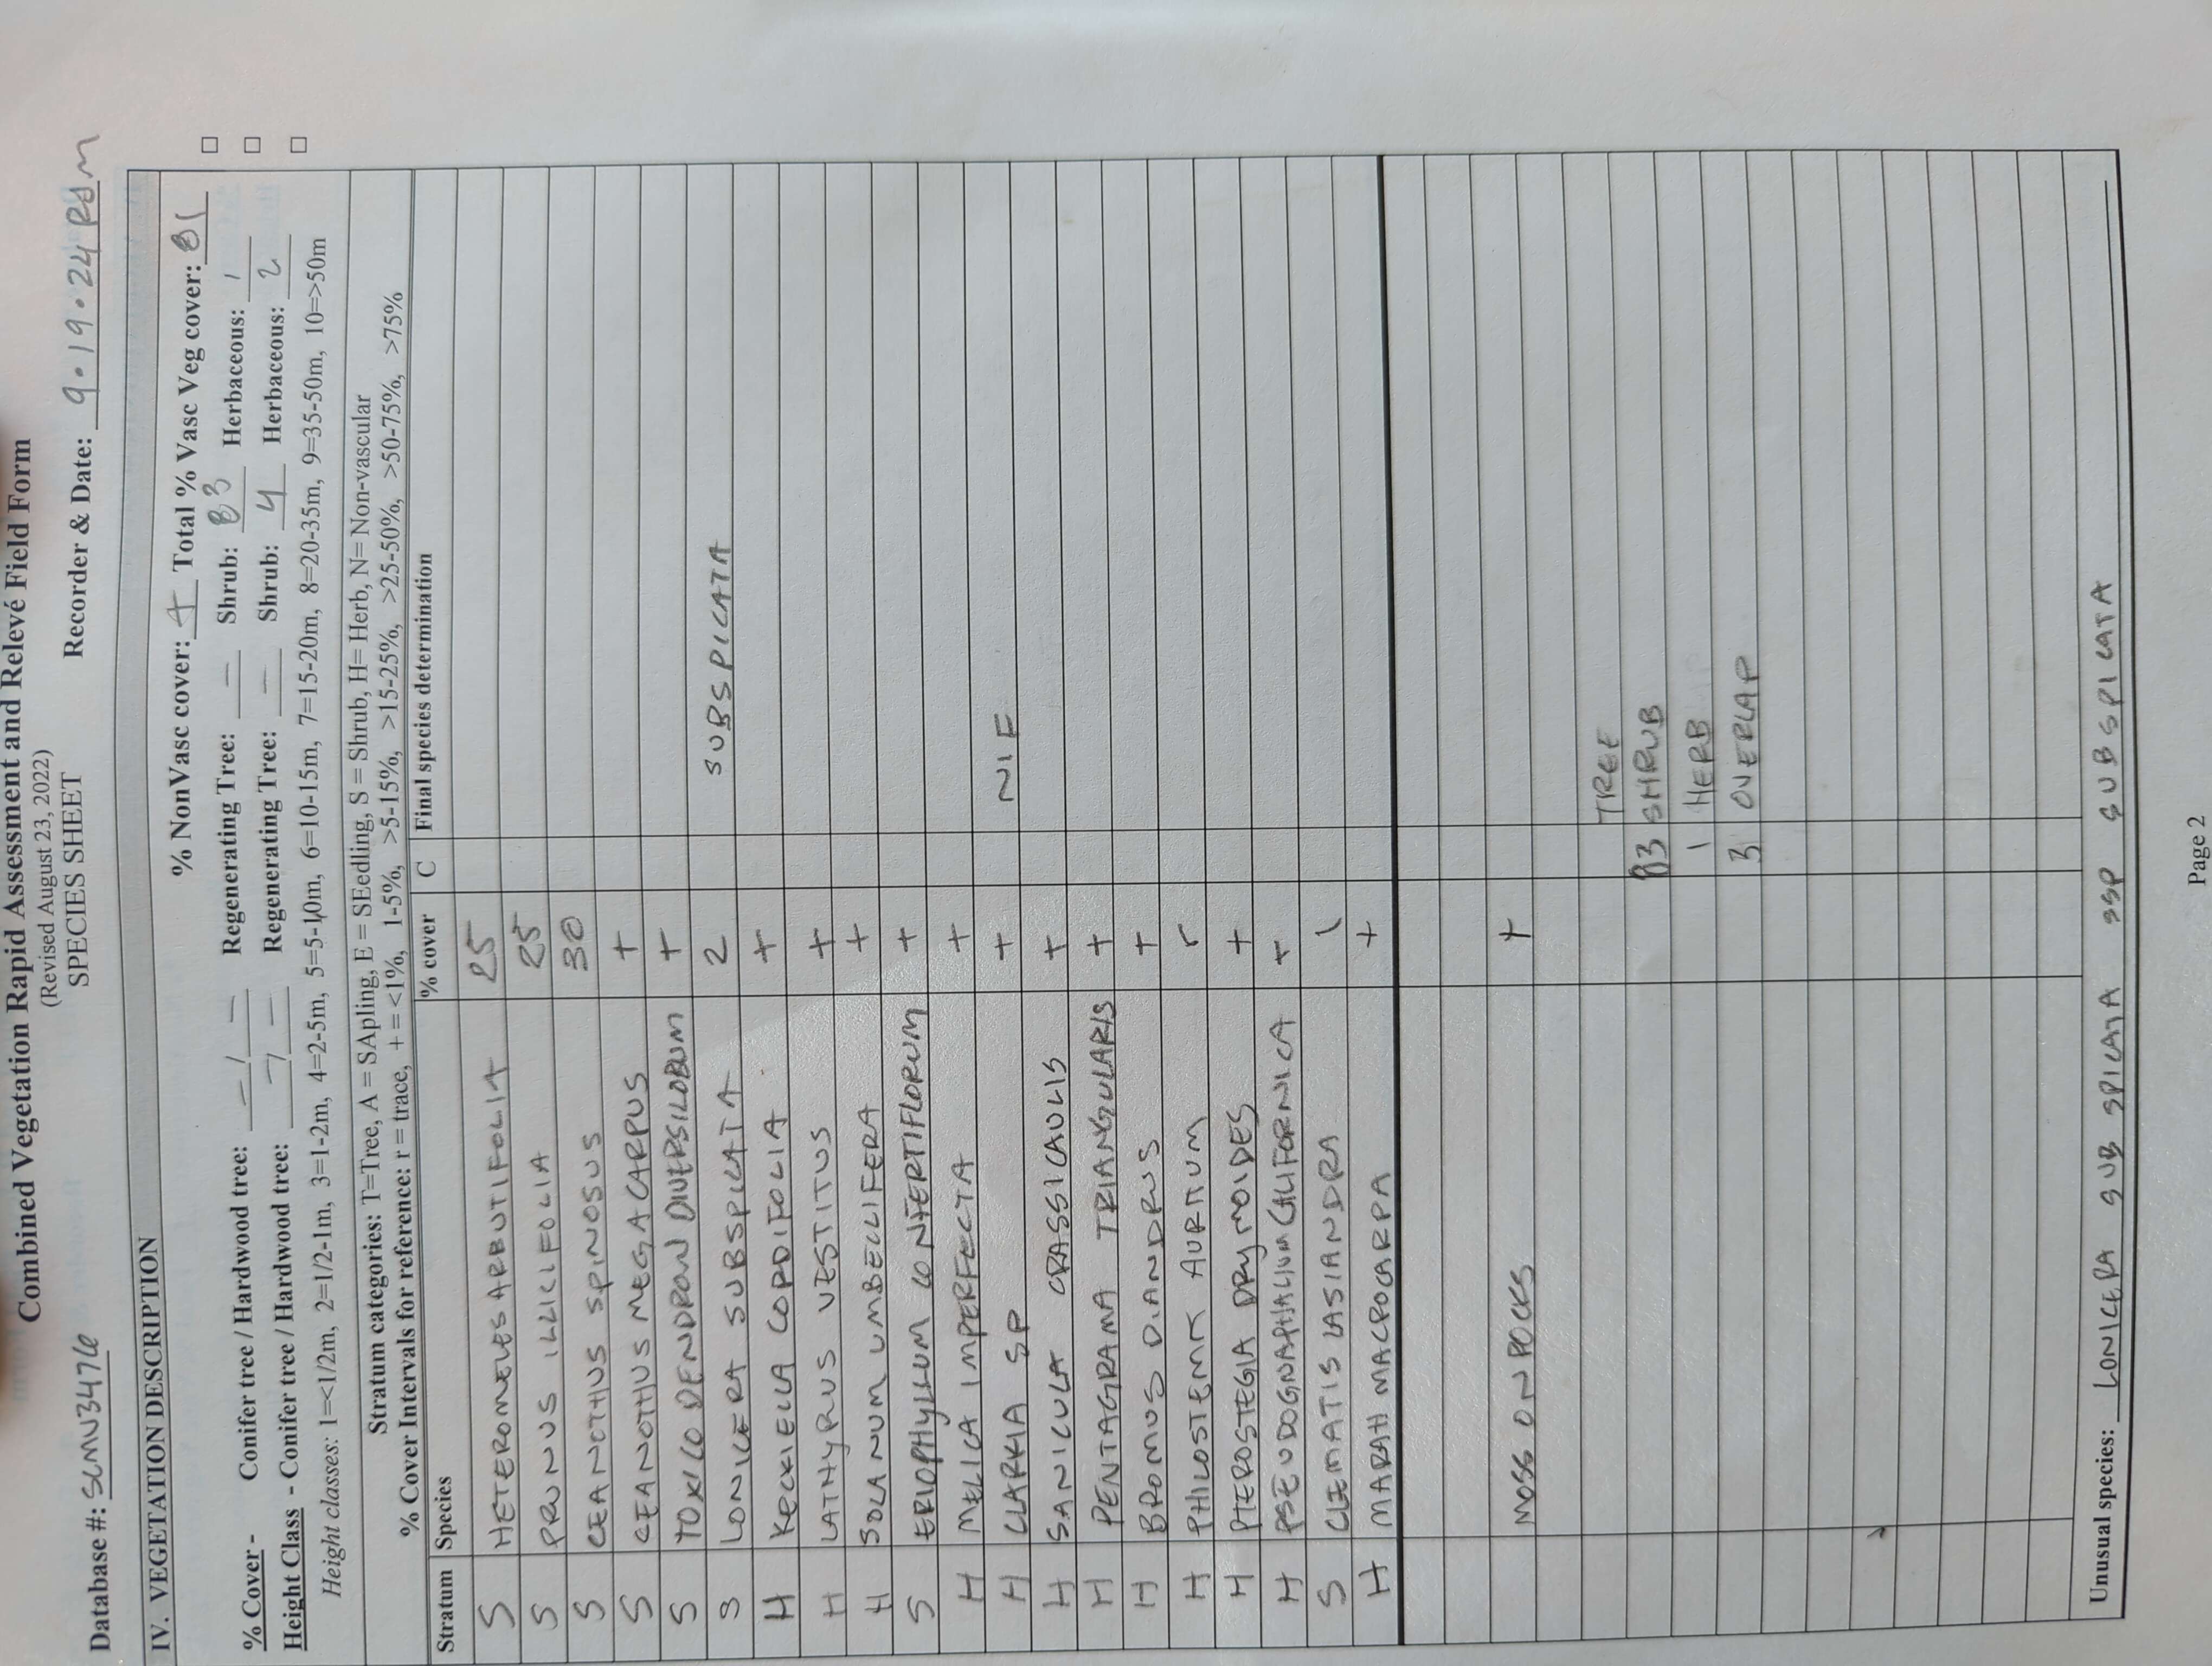 Combined Vegetation Rapid Assessment and Relevé Field Form
(Revised August 23, 2022)
SPECIES SHEET
Database #: SCMU3476 Recorder & Date: 9.19.24 RDM
IV. VEGETATION DESCRIPTION
% NonVasc cover: + Total % Vasc Veg cover: 81
% Cover - Conifer tree / Hardwood tree: – / – Regenerating Tree: – Shrub: 83 Herbaceous: 1
Height Class - Conifer tree / Hardwood tree: – / – Regenerating Tree: – Shrub: 4 Herbaceous: 2
Height classes: 1=<1/2m, 2=1/2-1m, 3=1-2m, 4=2-5m, 5=5-10m, 6=10-15m, 7=15-20m, 8=20-35m, 9=35-50m, 10=>50m
Stratum categories: T=Tree, A = SApling, E = SEedling, S = Shrub, H= Herb, N= Non-vascular
% Cover Intervals for reference: r = trace, + = <1%, 1-5%, >5-15%, >15-25%, >25-50%, >50-75%, >75%
Stratum Species % cover C Final species determination
S HETEROMELES ARBUTIFOLIA 25
S PRUNUS ILLICIFOLIA 25
S CEANOTHUS SPINOSUS 30
S CEANOTHUS MEGACARPUS +
S TOXICODENDRON DIVERSILOBUM +
S LONICERA SUBSPICATA 2 SUBSPICATA
H KECKIELLA CORDIFOLIA +
H LATHYRUS VESTITUS +
H SOLANUM UMBELLIFERA +
S ERIOPHYLLUM CONFERTIFLORUM +
H MELICA IMPERFECTA +
H CLARKIA SP + NIF
H SANICULA CRASSICAULIS +
H PENTAGRAMA TRIANGULARIS +
H BROMUS DIANDRUS +
H PHILOSTEMA AURITUM r
H PTEROSTEGIA DRYMOIDES +
H PSEUDOGNAPHALIUM CALIFORNICA +
S CLEMATIS LASIANDRA 1
H MARAH MACROCARPA +
MOSS ON ROCKS +
TREE
83 SHRUB
1 HERB
3 OVERLAP
Unusual species: LONICERA SUBSPICATA SSP SUBSPICATA
Page 2